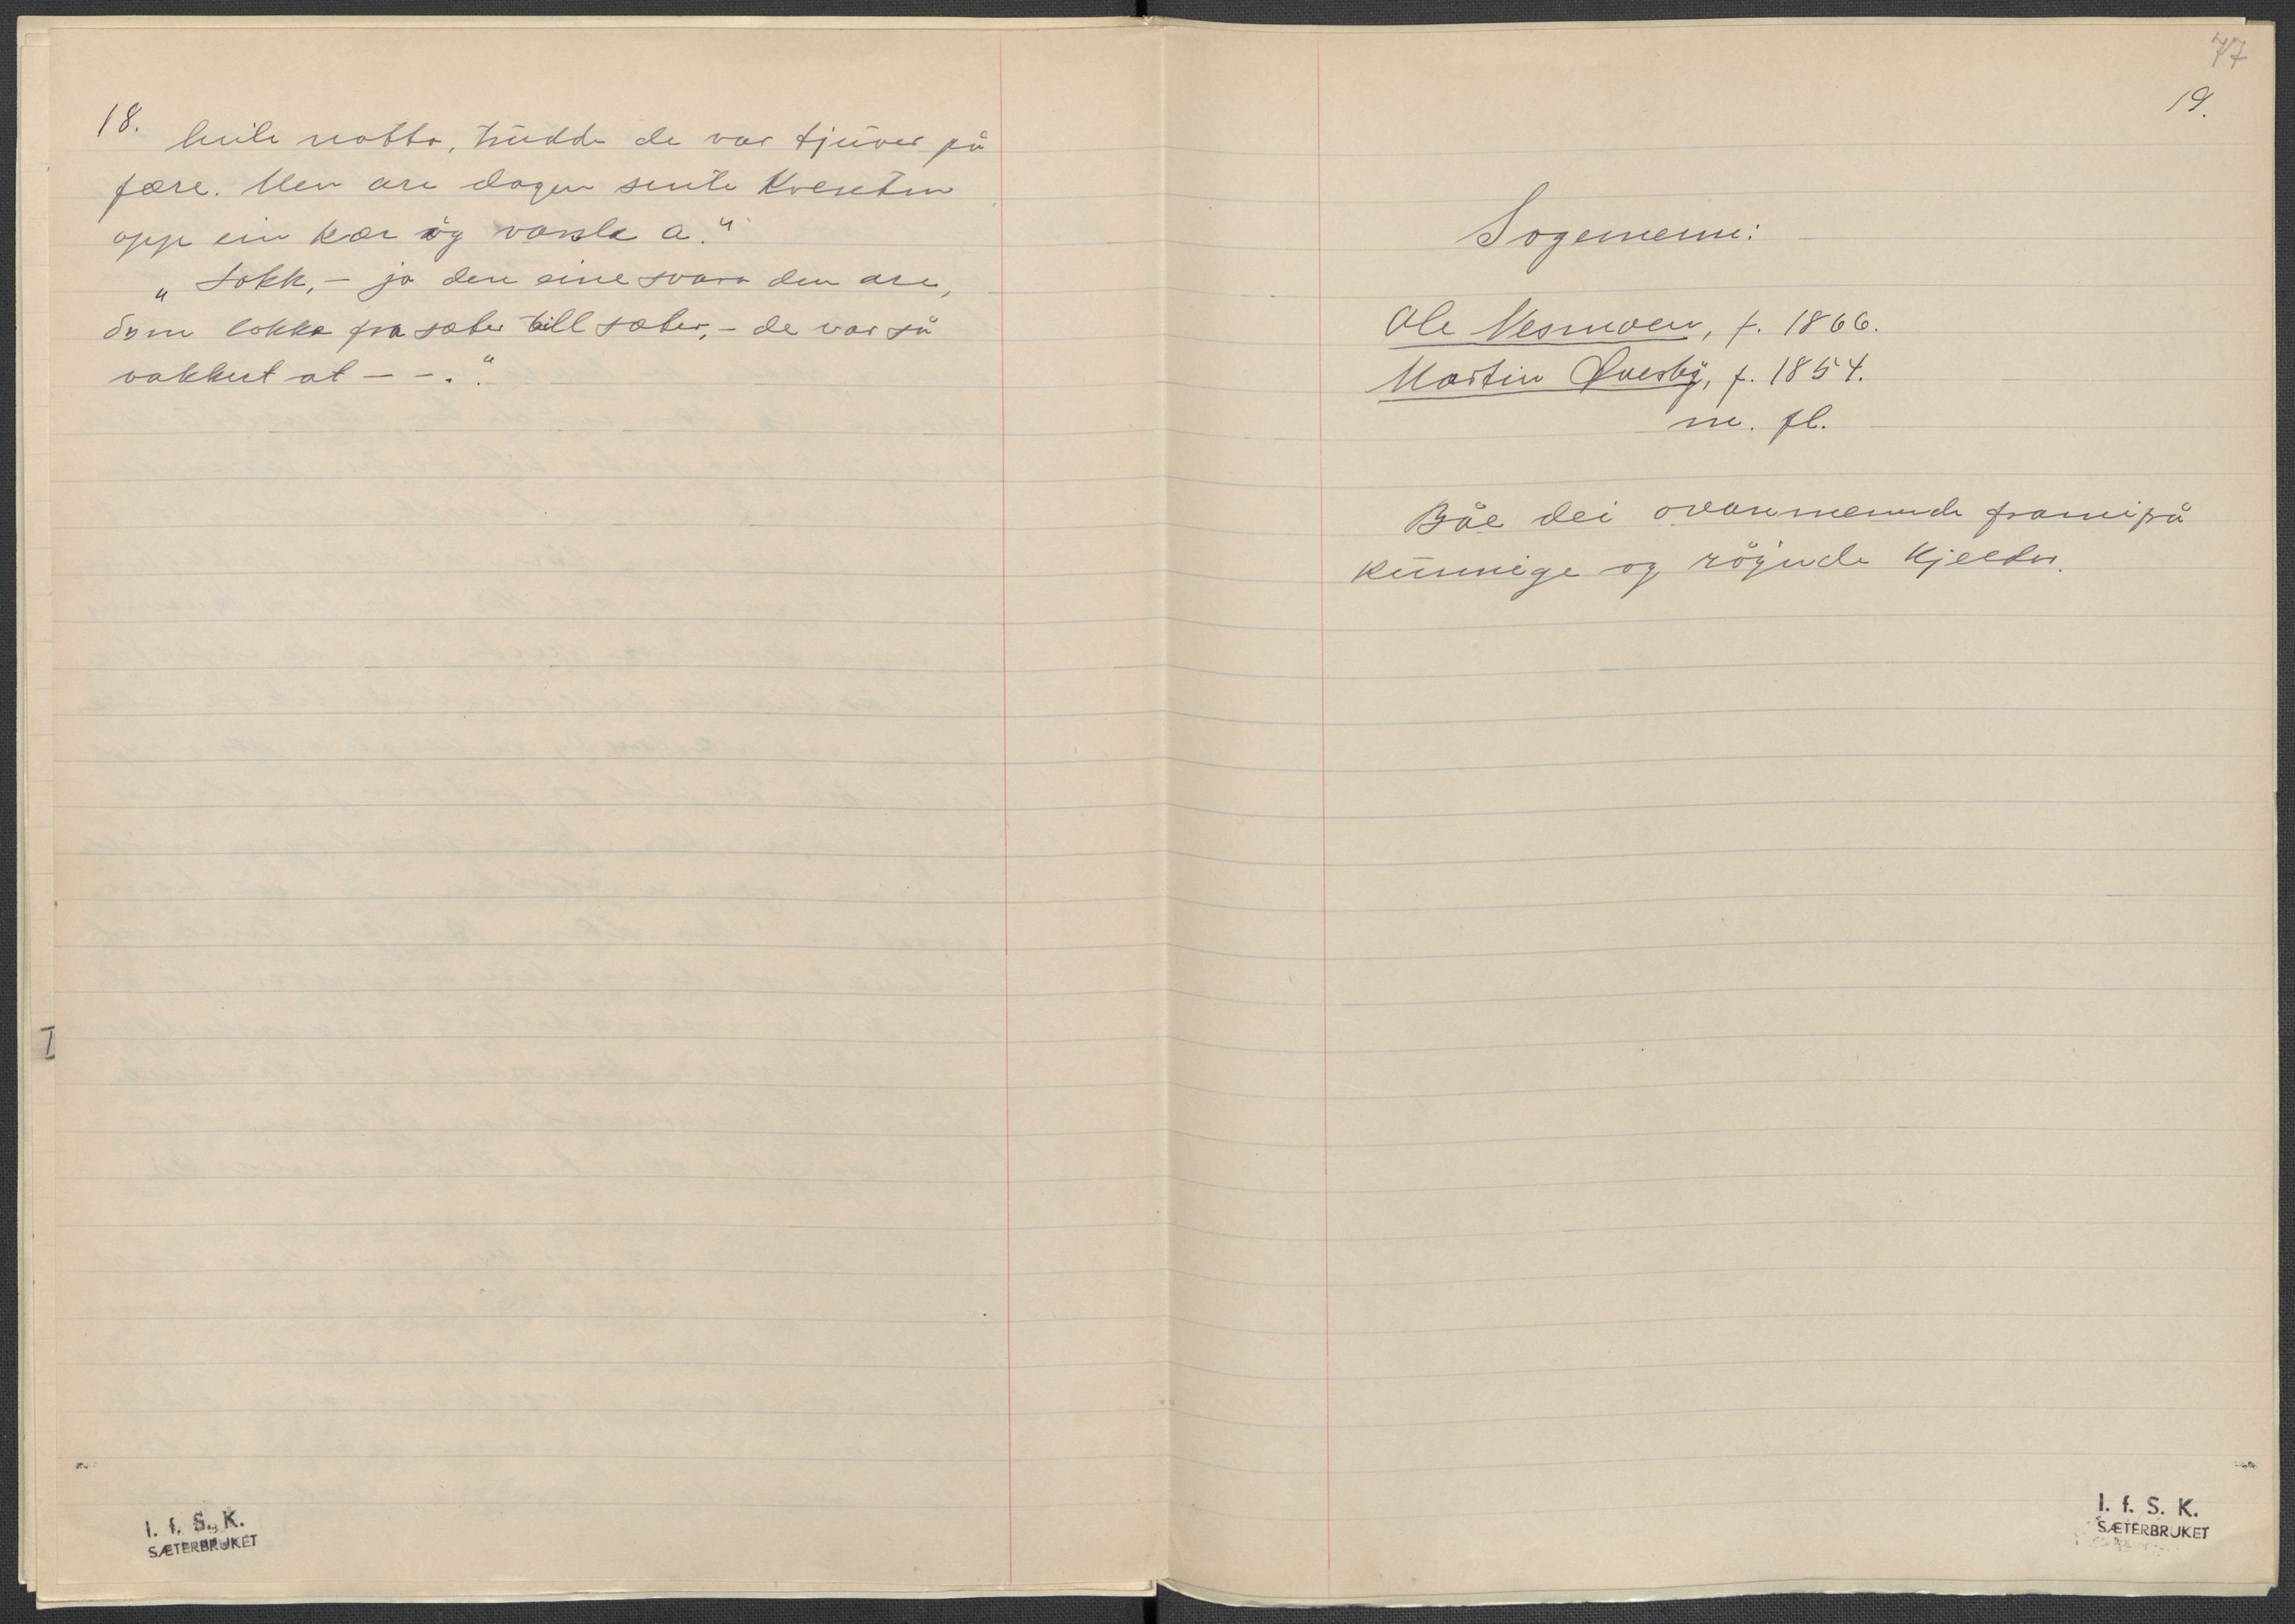 18.
heile natta, trudde de var tjuver på
fære. Men are dagen sente Kvenetin
opp ein kar og varsla a."
"Lokk, - ja den eine svara den are,
som lokka fra sæter till sæter, - de var så
vakkert at - - ."
77
19.
Sogemenn:
Ole Nesmoen, f. 1866.
Martin Øvesby, f. 1854.
m. fl.
Båe dei ovannemnde framifrå
kunnige og røynde kjelder.
I
I. f. S. K.
SÆTERBRUKET
I. f. S. K.
SÆTERBRUKET